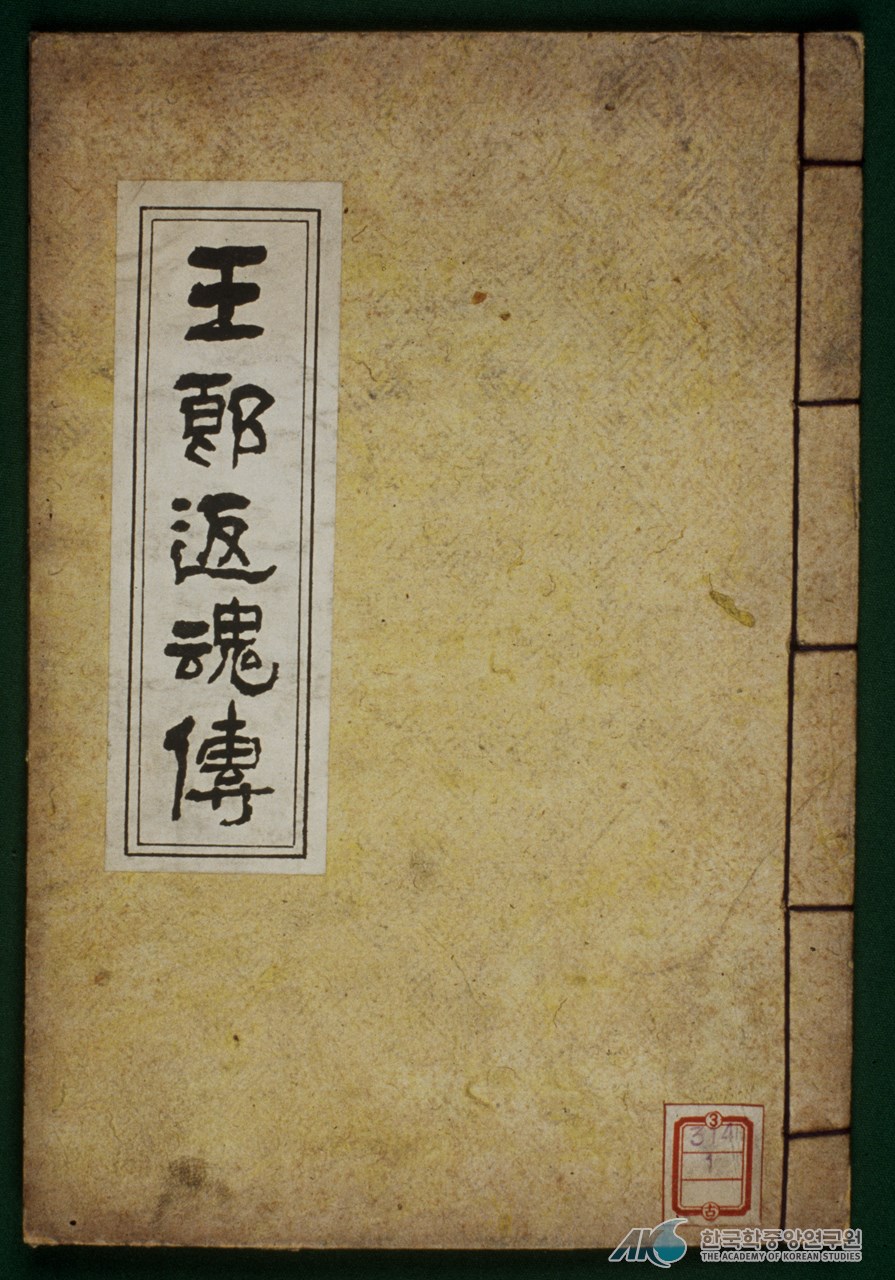 王郞返魂傳
3
314
1
古
한국학중앙연구원
THE ACADEMY OF KOREAN STUDIES